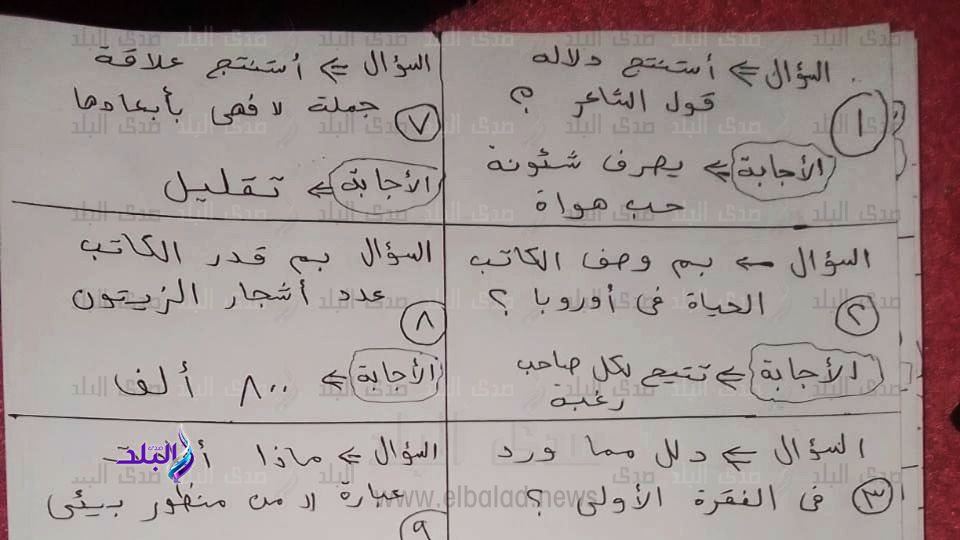 السؤال => أستنتج دلاله
قول الشاعر ؟
١
الأجابة => يصرف شئونة
حب هواة
السؤال => أستنتج علاقة
جملة لا فهى بأبعادها
٧
الأجابة => تقليل
السؤال <- بم وصف الكاتب
الحياة فى أوروبا ؟
٢
الأجابة => تتيح لكل صاحب
رغبة
السؤال بم قدر الكاتب
عدد أشجار الزيتون
٨
الأجابة => ٨٠٠ ألف
السؤال => دلل مما ورد
فى الفقرة الأولى ؟
٣
السؤال => ماذا
عبارة من منظور بيئى
٩
صدى البلد
www.elbalad.news